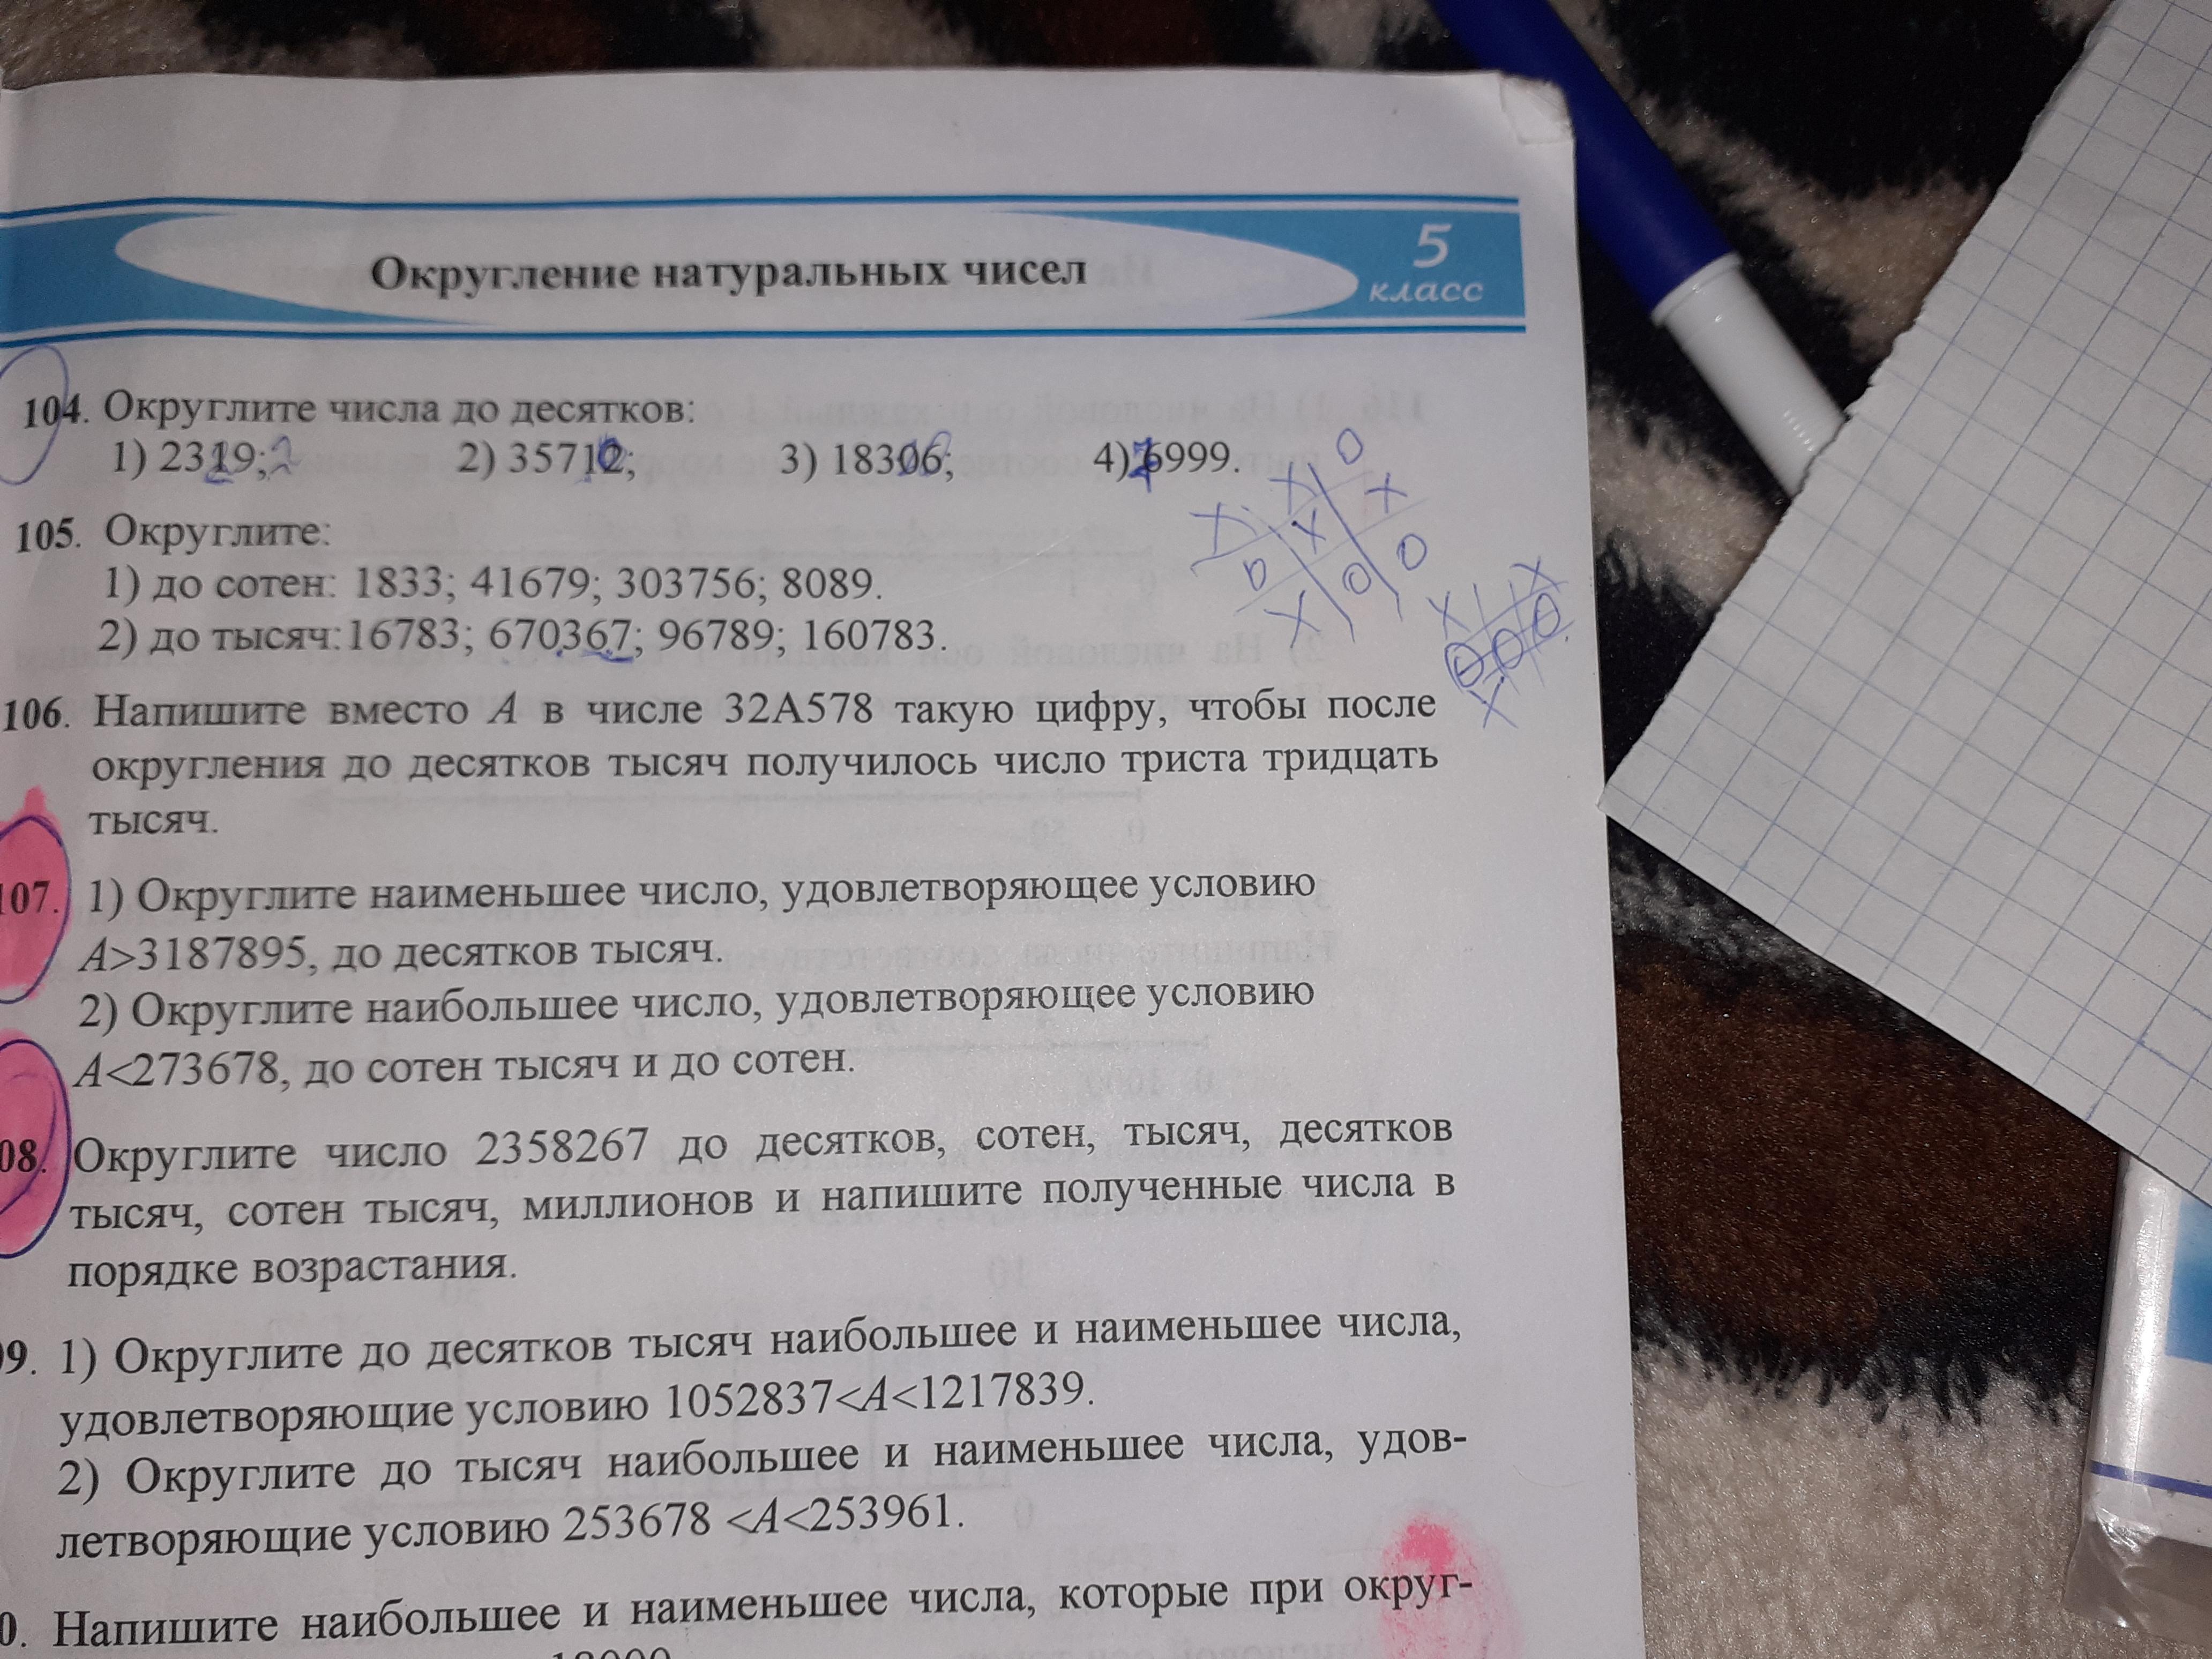 Округление натуральных чисел
5
класс
104. Округлите числа до десятков:
1) 2319; 2) 35712; 3) 18306; 4) 6999.
105. Округлите:
1) до сотен: 1833; 41679; 303756; 8089.
2) до тысяч:16783; 670367; 96789; 160783.
106. Напишите вместо А в числе 32А578 такую цифру, чтобы после
округления до десятков тысяч получилось число триста тридцать
тысяч.
107. 1) Округлите наименьшее число, удовлетворяющее условию
А>3187895, до десятков тысяч.
2) Округлите наибольшее число, удовлетворяющее условию
А<273678, до сотен тысяч и до сотен.
08. Округлите число 2358267 до десятков, сотен, тысяч, десятков
тысяч, сотен тысяч, миллионов и напишите полученные числа в
порядке возрастания.
9. 1) Округлите до десятков тысяч наибольшее и наименьшее числа,
удовлетворяющие условию 1052837<А<1217839.
2) Округлите до тысяч наибольшее и наименьшее числа, удов-
летворяющие условию 253678 <А<253961.
0. Напишите наибольшее и наименьшее числа, которые при округ-